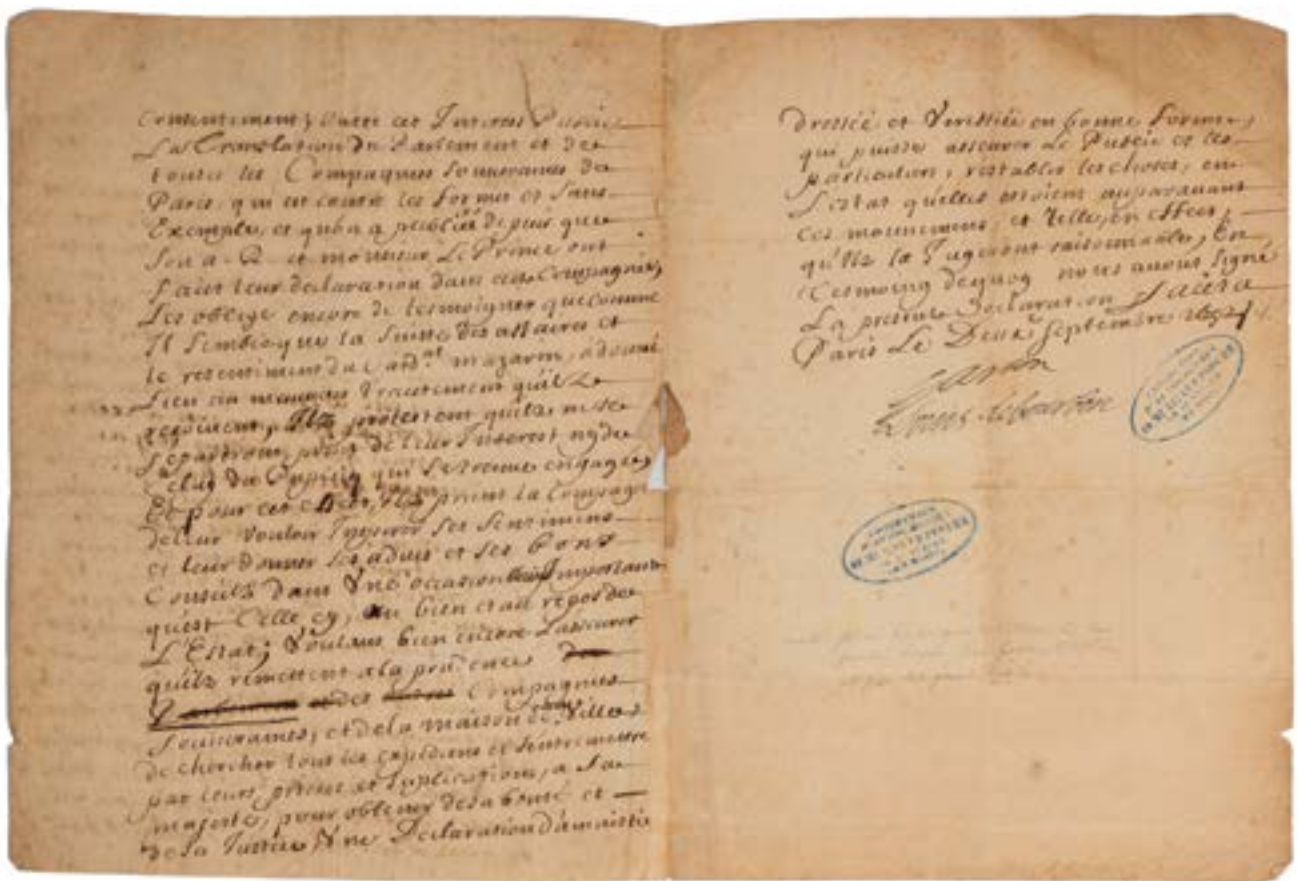 contentement, Outre cet Interest Public
La Translation du Parlement et de
toutes les Compagnies souveraines de
Paris, qui est contre les formes et sans
Exemple, et qu'on a publiée depuis que
son A. R. et monsieur Le Prince ont
faict leur declaration dans ces Compagnies,
Les oblige encore de tesmoigner que comme
Il semble que la suitte des affaires et
le resentiment du Card.al mazarin, a donné
lieu au mauvais traictement qu'ils
reçoivent, Ilz protestent qu'ilz ne se
de leur Interest, ny de
celuy du qui se treuve engagé,
Et pour cet effect, Ilz prient la Compagnie
de leur vouloir ses sentimens
et leur donner ses aduis et ses bons
Conseilz dans Vne occasion Importante
qu'est Celle cy, au bien et au repos de
L'Estat; Voulans bien encore L'asseurer
qu'ilz remettent a la prudence
des Compagnies
souveraines, et de la maison de Ville
de chercher tous les expediens et s'entremettre
par leurs prieres et suplications, a sa
majesté, pour obtenir de sa bonté et
de sa Justice Vne Declaration d'amnistie
dressée et Veriffiée en bonne forme,
qui puisse asseurer Le Public et les
particuliers, restablir les choses, en
L'estat qu'elles estoient auparauant
ces mouuemens, et telle, en effect,
qu'ilz la Jugeront raisonnable, En
tesmoing dequoy nous auons signé
La presente Declaration faicte a
Paris Le Deux septembre 1652
Gaston
Louis de bourbon